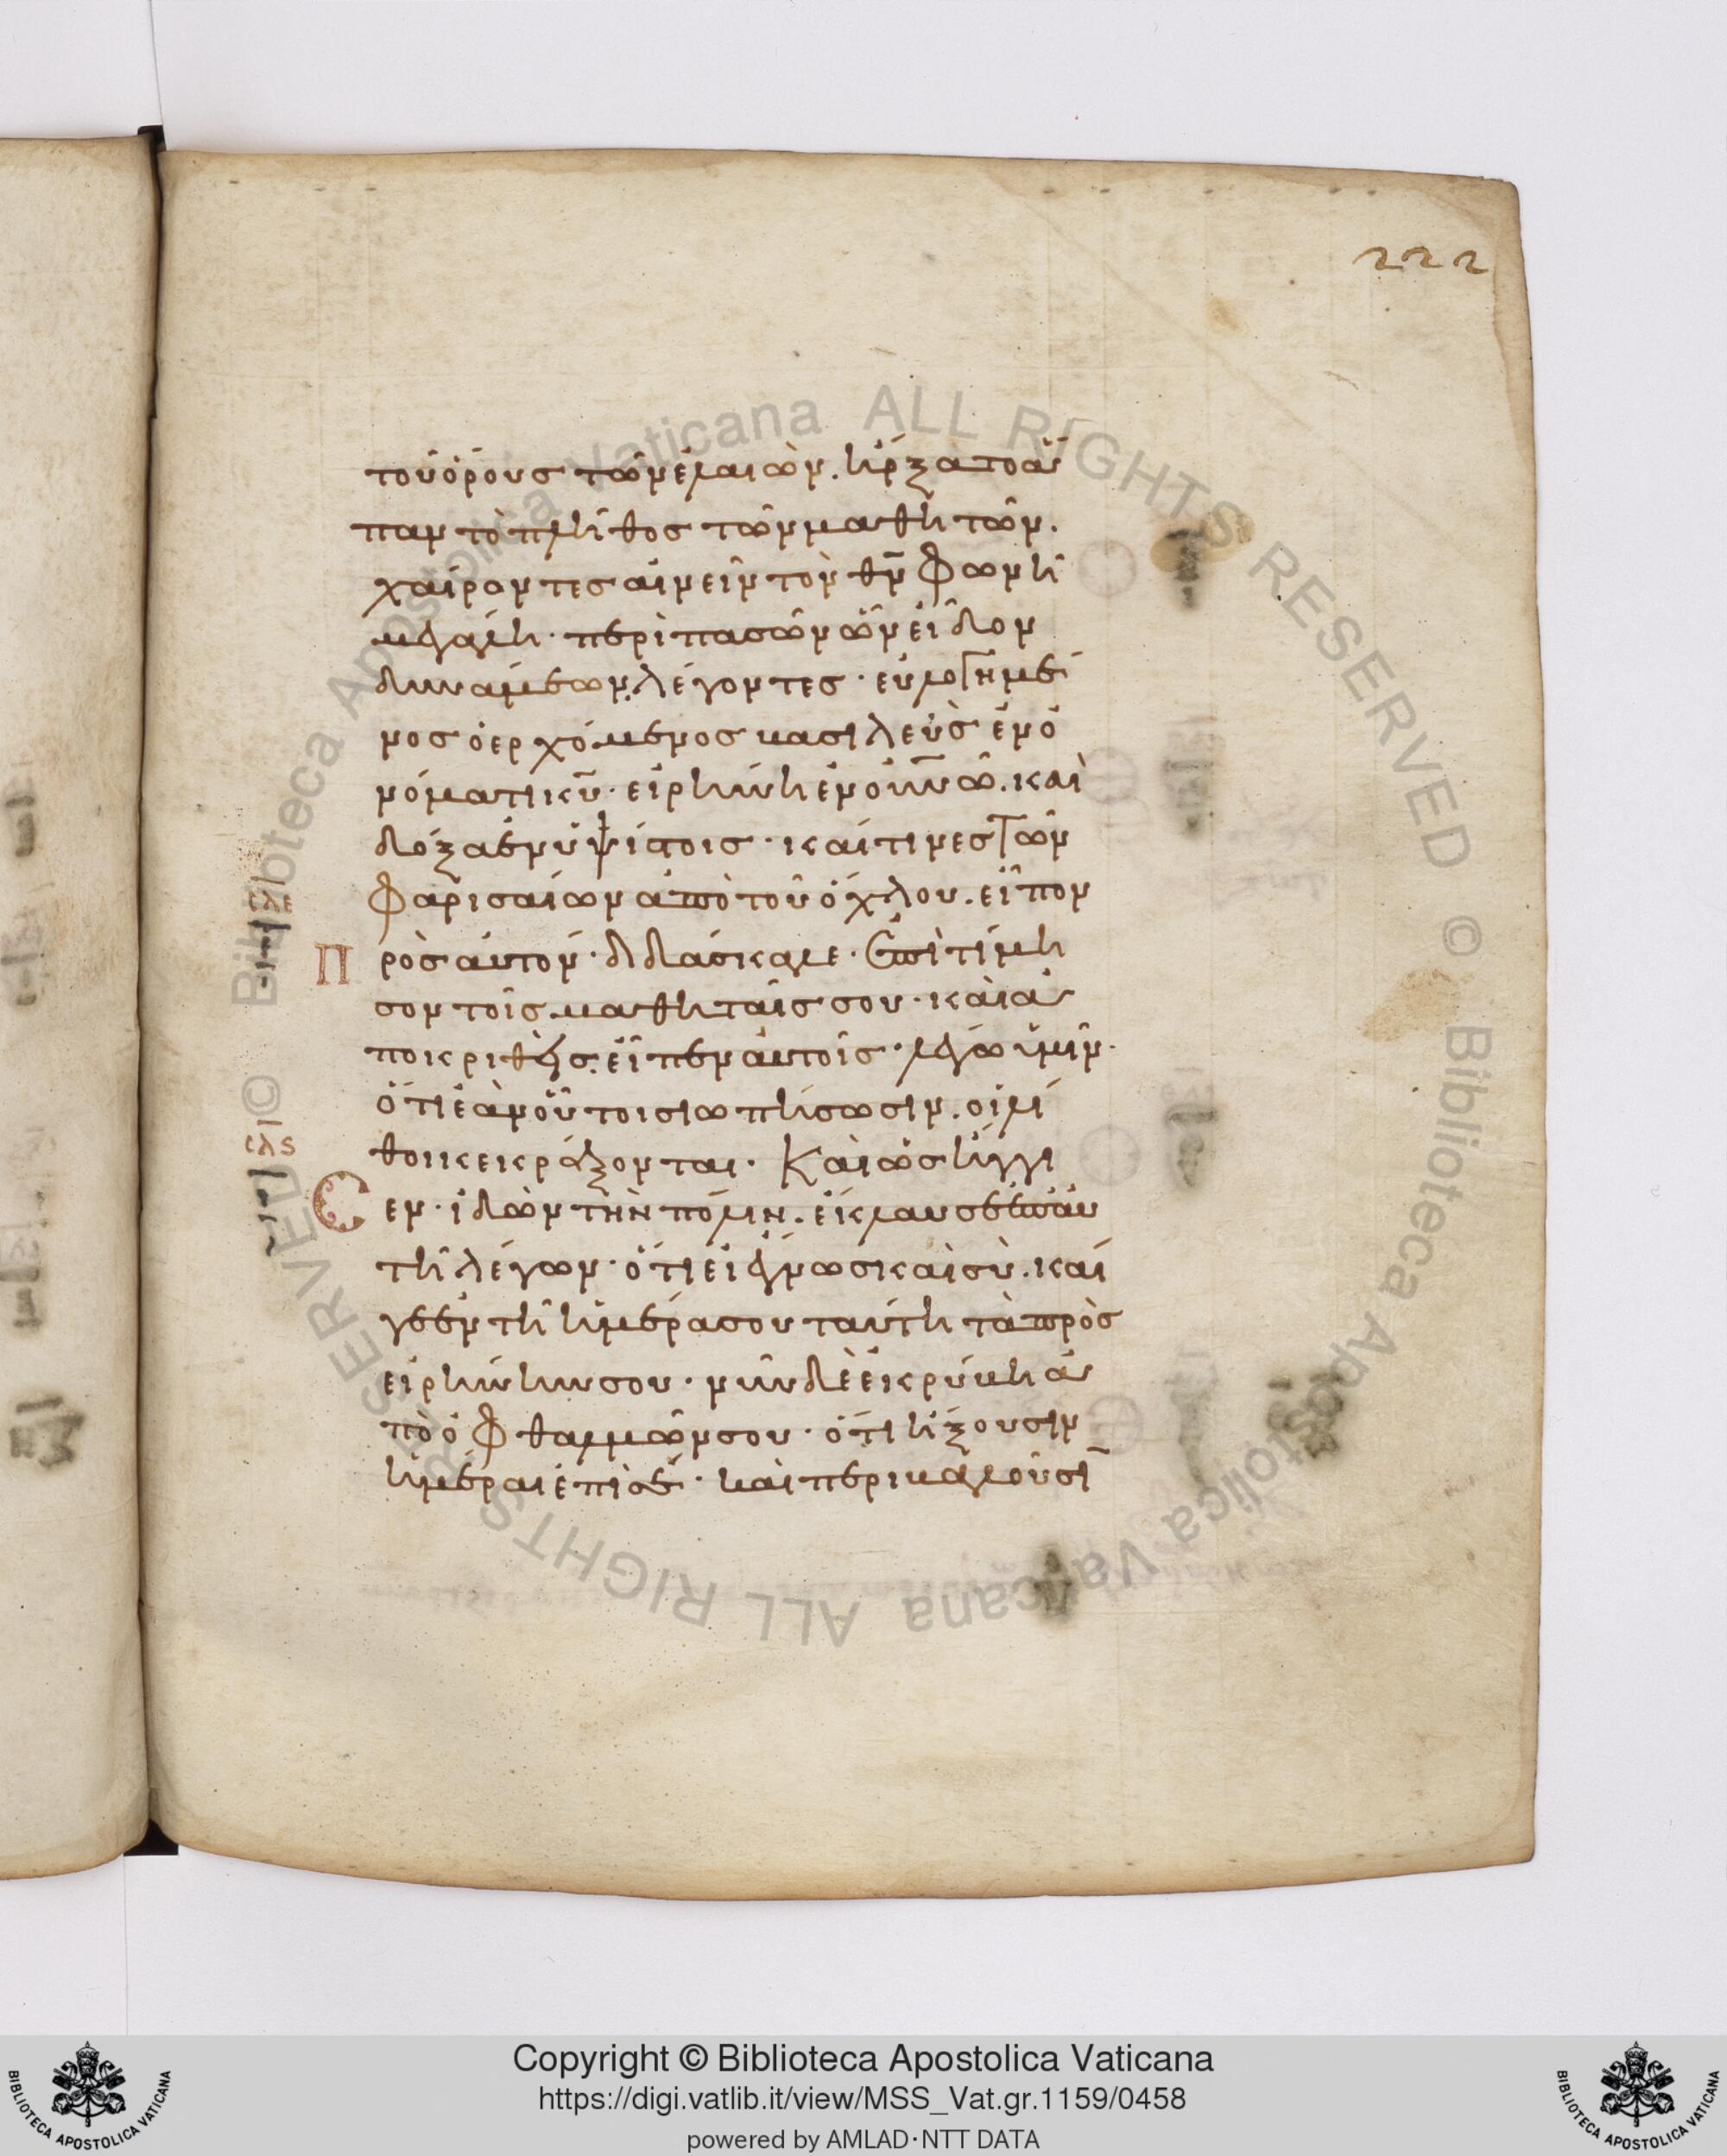 222
τοῦ ὄρους τῶν ἐλαιῶν. ἤρξατο ἅ
παν τὸ πλῆθος τῶν μαθητῶν.
χαίροντες αἰνεῖν τὸν θν̄ φωνῆ
μεγάλη· περὶ πασῶν ὧν εἶδον
δυνάμεων λέγοντες· εὐλογημέ
νος ὁ ερχόμενος βασιλεὺς ἐν ὀ
νόματι κῡ· εἰρήνη ἐν οὐνω̄. καὶ
δόξα ἐν ὑψίστοις· καί τινες τῶν
φαρισαίων ἀπὸ τοῦ ὄχλου. εἶπον
Πρὸς αὐτον· διδάσκαλε· ἐπιτίμη
σον τοῖς μαθηταῖς σου· καὶ ἀ
ποκριθεὶς. εἶπεν αὐτοῖς· λέγω ὑμῖν·
ὅτι ἐὰν οὗτοι σιωπήσωσιν. οἱ λί
θοι κεκράξονται· Καὶ ὡς ἤγγι
Cεν· ἰδὼν τὴν πόλιν. ἔκλαυσεν ἐπ' αὐ
τῆ λέγων· ὅτι εἰ ἔγνως καὶ σὺ. καί
γε ἐν τῆ ἡμέρα σου ταύτη τὰ πρὸς
εἰρήνην σου· νῦν δὲ ἐκρύβη ἀ
πὸ ὀφθαλμῶν σου· ὅτι ἥξουσιν
ἡμέραι ἐπὶ σέ· καὶ περιβαλοῦσῑ
σλς
ALL RIGHTS RESERVED © Biblioteca Apostolica Vaticana ALL RIGHTS RESERVED © Biblioteca Apostolica Vaticana
BIBLIOTECA APOSTOLICA VATICANA
Copyright © Biblioteca Apostolica Vaticana
https://digi.vatlib.it/view/MSS_Vat.gr.1159/0458
powered by AMLAD·NTT DATA
BIBLIOTECA APOSTOLICA VATICANA